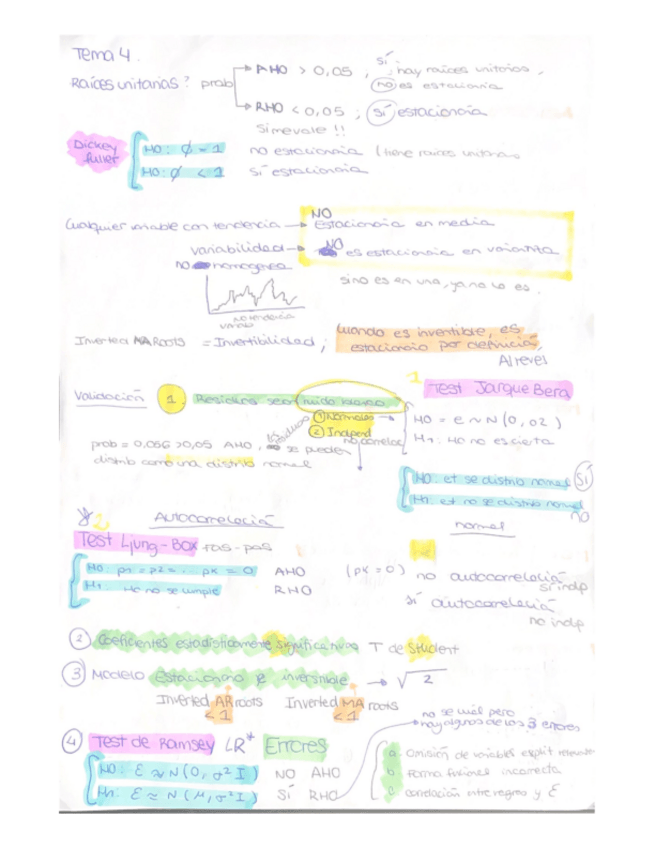 Tema 4.
Raíces unitarias? prob
AHO > 0,05 , sí hay raíces unitarias,
no es estacionaria
RHO < 0,05 ; sí estacionaria
Si me vale !!
Dickey fuller
HO: φ = 1 no estacionaria (tiene raíces unitarias
HO: φ < 1 sí estacionaria
Cualquier variable con tendencia → NO Estacionaria en media
variabilidad → NO es estacionaria en varianza
no homogenea
si no es en una, ya no lo es.
no tendencia
Inverted MA Roots = Invertibilidad ; cuando es invertible, es
estacionario por definición
Al revés
Validación 1. Residuos sean ruido blanco
1 Normales →
2 Independ
no correlac
1 Test Jarque Bera
HO = e ~ N(0, σ2)
H1: HO no es cierta
prob = 0,056 > 0,05 AHO, residuos se pueden
distrib como una distrib normal
HO: et se distrib normal SÍ
H1: et no se distrib normal NO
normal
2 Autocorrelación
Test Ljung-Box fas-pas
HO: p1 = p2 = ... pk = 0 AHO (pk = 0) no autocorrelación
sí indp
H1: HO no se cumple RHO sí autocorrelación
no indp
2 Coeficientes estadísticamente significativos T de Student
3 Modelo Estacionario e invertible → √ 2
Inverted AR roots < 1 Inverted MA roots < 1
no se cuál pero
hay alguno de los 3 errores
4 Test de Ramsey LR* Errores
HO: ε ≈ N(0, σ²I) NO AHO
H1: ε ≈ N(μ, σ²I) SÍ RHO
a. Omisión de variables explit relevantes
b. forma funional incorrecta
c. correlación intre regreso y ε